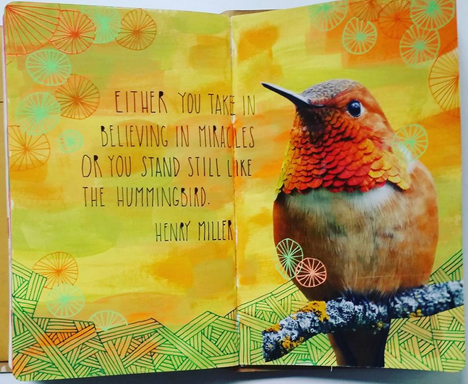 EITHER YOU TAKE IN
BELIEVING IN MIRACLES
OR YOU STAND STILL LIKE
THE HUMMINGBIRD.
HENRY MILLER